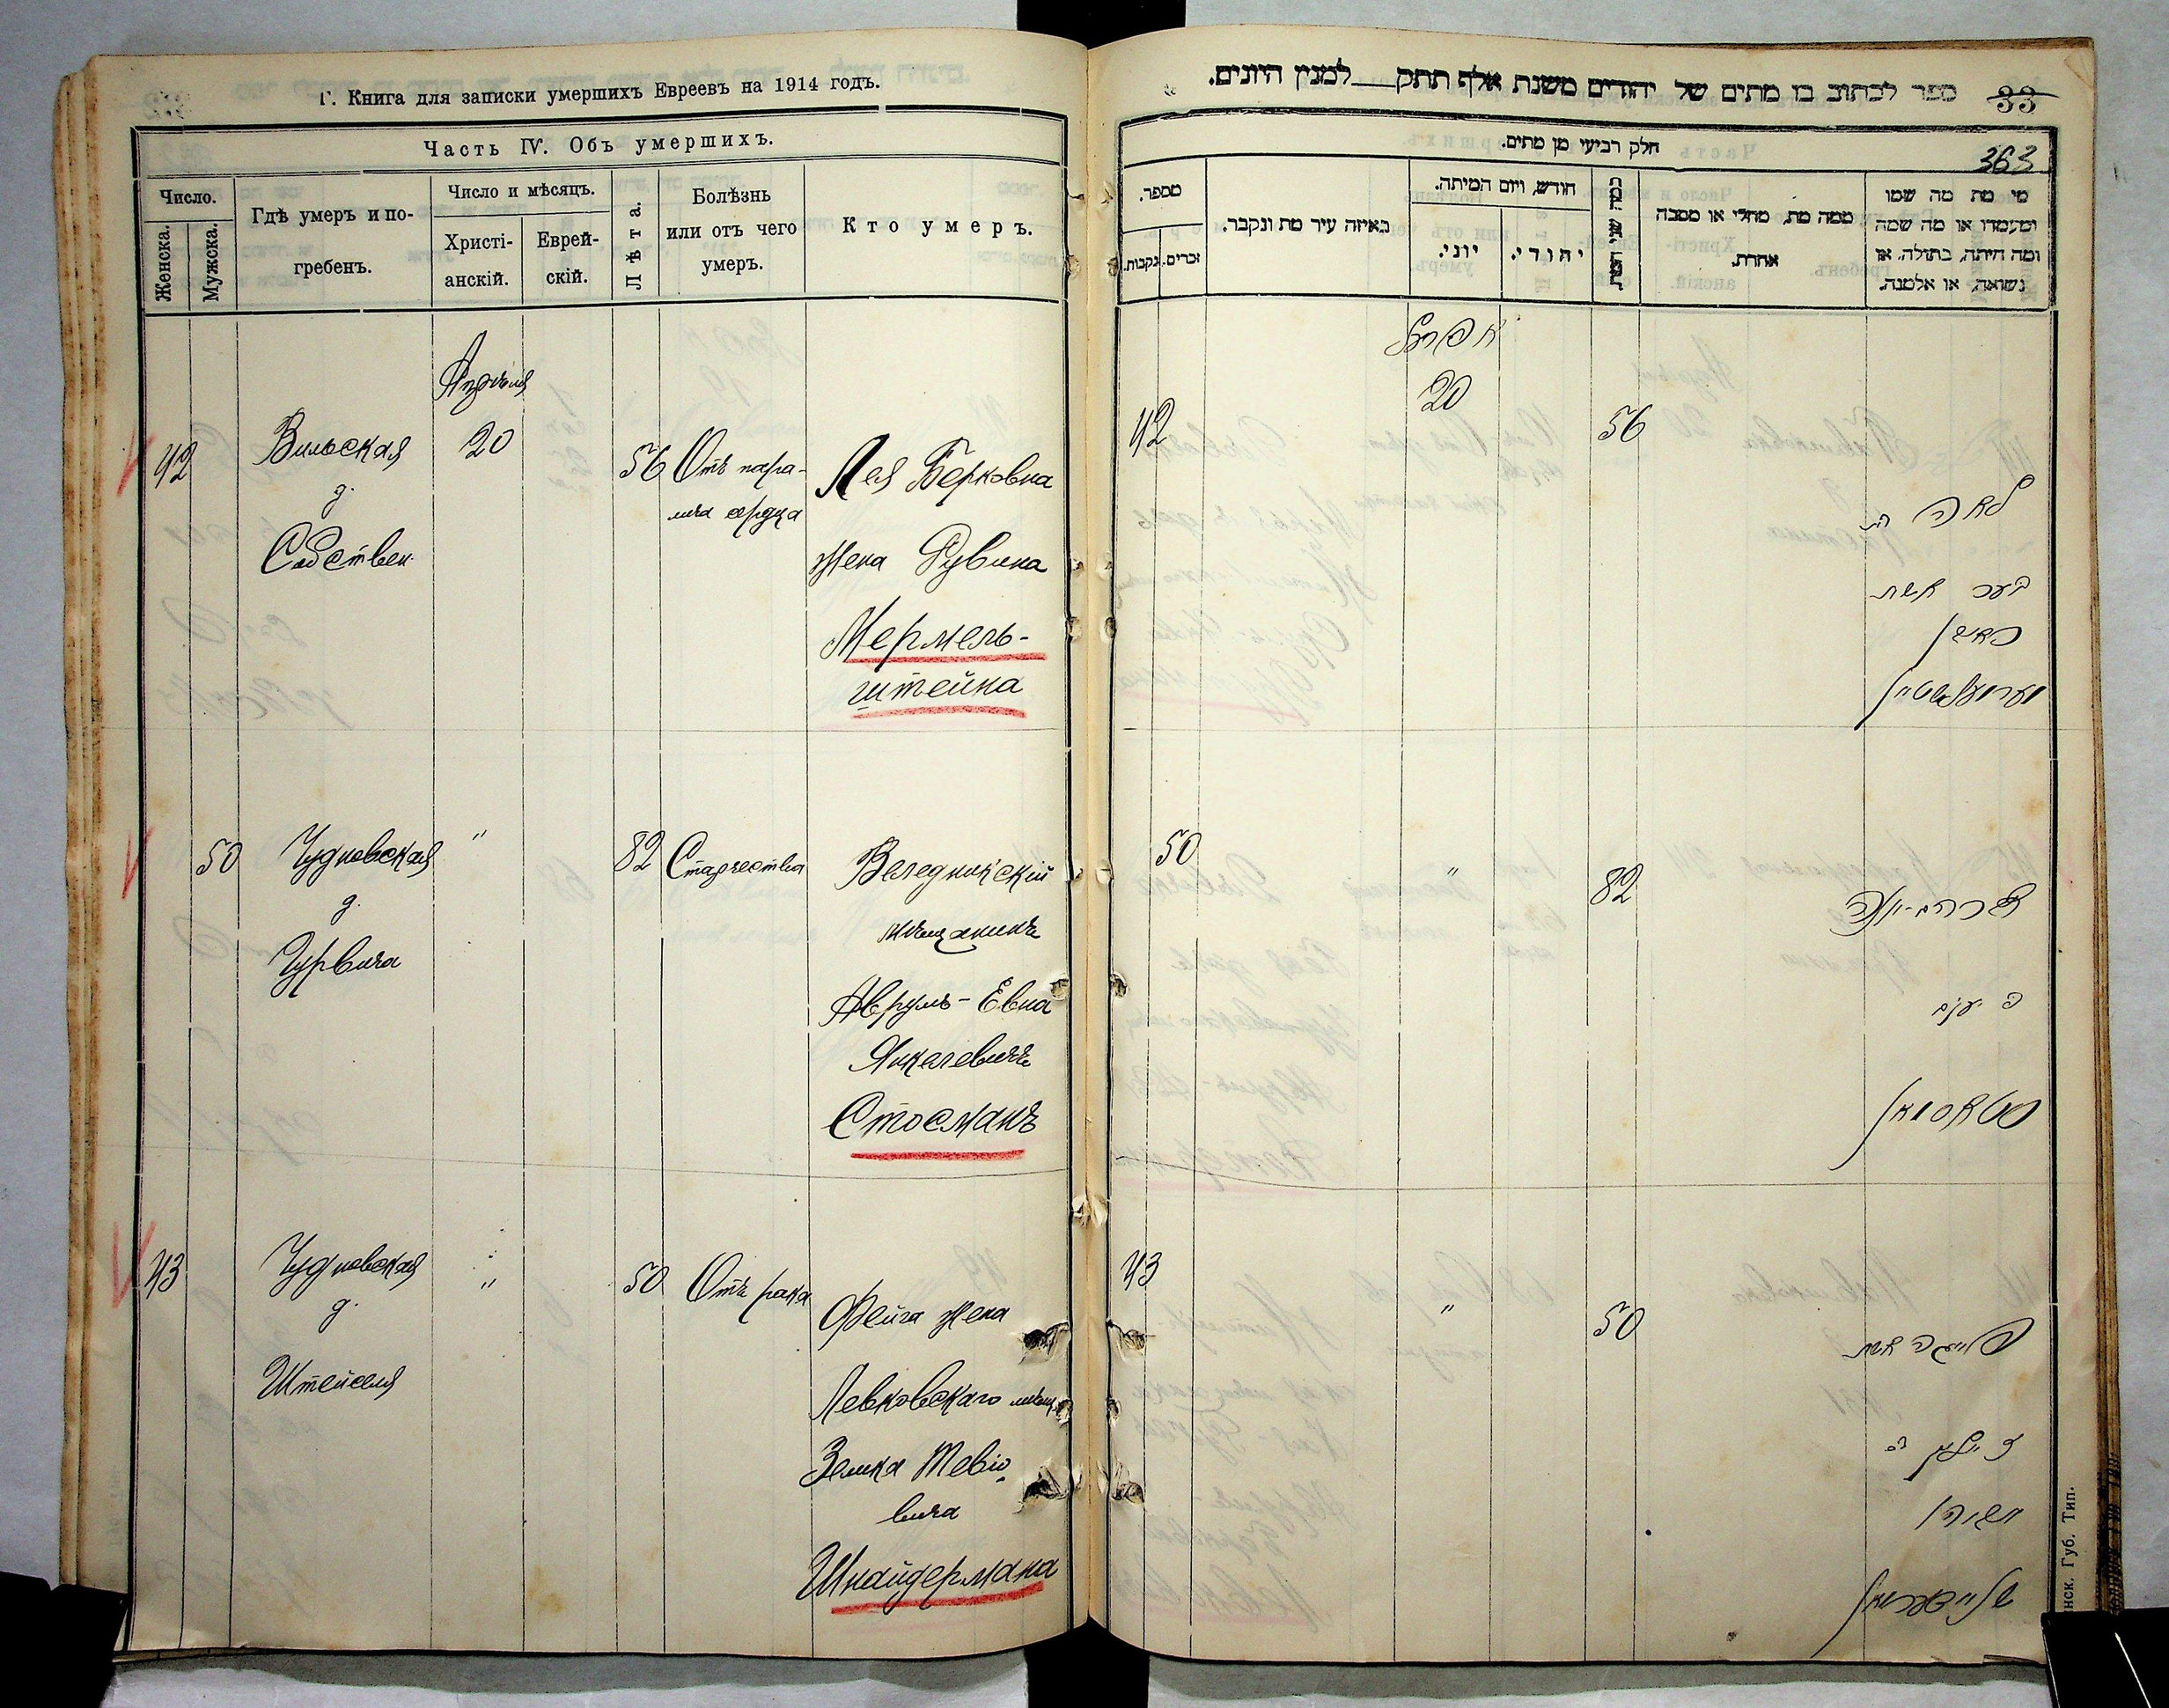 Г. Книга для записки умершихъ Евреевъ на 1914 годъ.
Часть IV. Объ умершихъ.
Число.
Женска.
Мужска.
Гдѣ умеръ и по-
гребенъ.
Число и мѣсяцъ.
Христі-
анскій.
Еврей-
скій.
Лѣта.
Болѣзнь
или отъ чего
умеръ.
Кто умеръ.
Апрѣля
42
Вильская
д.
Собствен.
20
56
Отъ пара-
лича сердца
Лея Берковна
жена Рувина
Мермель-
штейна
50
Чудновская
д.
Гурвича
"
82
Старчества
Веледникскій
мѣщанинъ
Аврумъ-Евна
Янкелевичъ
Стосманъ
43
Чудновская
д.
"
50
Отъ рака
Фейга жена
Левковскаго мѣщ.
Зелика Тевіо-
вича
Шнайдермана
ספר לכתוב בו מתים של יהודים משנת אלף תתק למנין היונים.
33
חלק רביעי מן מתים.
363
מספר.
נקבות.
זכרים.
באיזה עיר מת ונקבר.
חודש, ויום המיתה.
יוני.
יהודי.
כמה שני המת
ממה מת, מחלי או מסבה
אחרת.
מי מת מה שמו
ומעמדו או מה שמה
ומה היתה, בתולה, או
נשואה, או אלמנה.
אפריל
42
20
56
לאה בת
בערי אשת
ראובן
מערמעלשטיין
50
"
82
אברהם-יונה
ב יעקב
סטאסמאן
43
"
50
פייגה אשת
זעליק ב
שניידערמאן
нск. Губ. Тип.